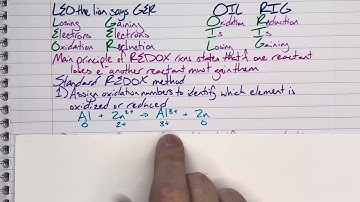 LEO the lion says GER OIL RIG
Losing Gaining Oxidation Reduction
Electrons Electrons Is Is
Oxidation Reduction Losing Gaining
Main principle of REDOX rxns states that if one reactant
loses e⁻ another reactant must gain them
Standard REDOX method
1) Assign oxidation numbers to identify which element is
oxidized or reduced
Al + Zn²⁺ → Al³⁺ + Zn
0 2+ 3+ 0